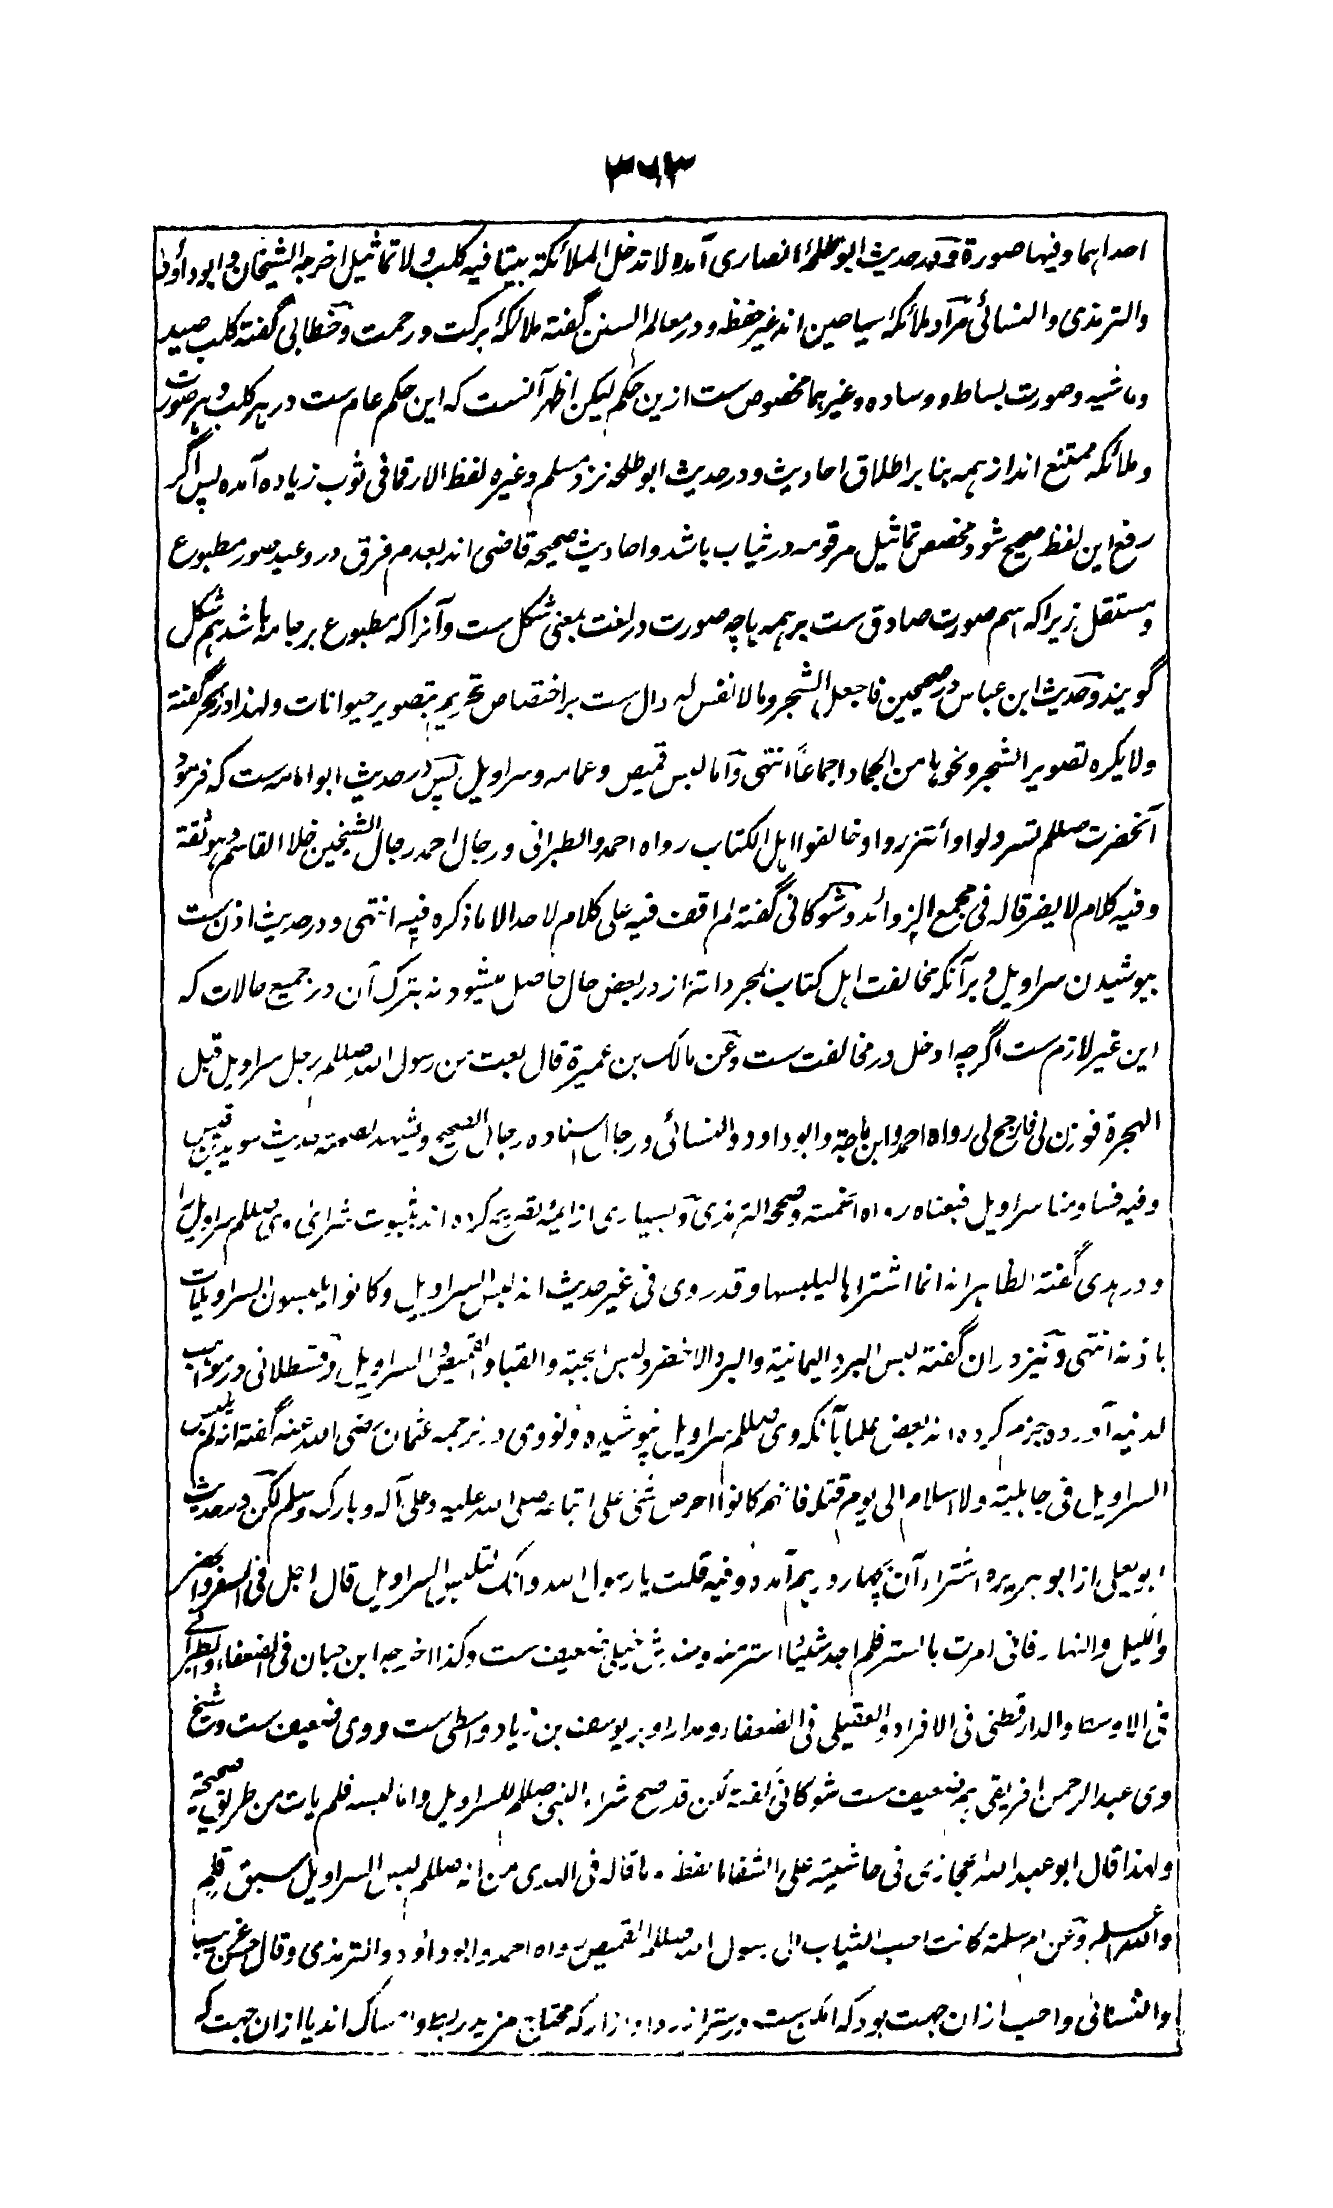 ۳۶۳
احداهما وفيها صورة ودر حدیث ابو طلحهٔ انصاری آمده لا تدخل الملائكة بيتا فيه كلب ولا تماثيل اخرجه الشيخان وابوداؤد
والترمذی والنسائی مراد ملائکهٔ سیاحین اند غیر حفظه ودر معالم السنن گفته ملائکهٔ برکت ورحمت وخطابی گفته کلب صید
وماشیه وصورت بساط ووساده وغیرهما مخصوص ست ازین حکم لیکن اظهر آنست که این حکم عام ست در هر کلب وهر صورت
وملائکه ممتنع اند از همه بنا بر اطلاق احادیث ودر حدیث ابو طلحه نزد مسلم وغیره لفظ الا رقما فی ثوب زیاده آمده پس اگر
رفع این لفظ صحیح شود مخصص تماثیل مرقومه در ثیاب باشد واحادیث صحیحه قاضی اند بعدم فرق در وعید صور مطبوع
ومستقل زیراکه اسم صورت صادق ست بر همه یا چه صورت در لغت بمعنی شکل ست وآنرا که مطبوع بر جامه باشد هم شکل
گویند وحدیث ابن عباس در صحیحین فاجعل الشجر وما لا نفس له دال ست بر اختصاص تحریم بتصویر حیوانات ولهذا در بحر گفته
ولا یکره تصویر الشجر ونحوها من الجماد اجماعاً انتهی واما لبس قمیص وعمامه وسراویل پس در حدیث ابو امامه ست که فرمود
آنحضرت صللم تسرولوا وأتزروا وخالفوا اهل الکتاب رواه احمد والطبرانی ورجال احمد رجال الشیخین خلا القاسم وهو ثقة
وفیه کلام لا یضر قاله فی مجمع الزوائد وشوکانی گفته لم اقف فیه علی کلام لاحد الا ما ذکره فیه انتهی ودر حدیث اذن ست
بپوشیدن سراویل وبرآنکه مخالفت اهل کتاب بمجرد اتزار در بعض حال حاصل میشود نه بترک آن در جمیع حالات که
این غیر لازم ست اگرچه ادخل در مخالفت ست وعن مالک بن عمیرة قال بعت من رسول الله صللم رجل سراویل قبل
الهجرة فوزن لی فارجح لی رواه احمد وابن ماجة وابوداود والنسائی ورجال اسناده رجال الصحیح ویشهد لصحته حدیث سوید بن قیس
وفیه فساومنا سراویل فبعناه رواه الخمسة وصححه الترمذی وبسیاری از ائمه تصریح کرده اند بثبوت شرائ وی صللم سراویل را
ودر هدی گفته الظاهر انه انما اشتراها لیلبسها وقد روی فی غیر حدیث انه لبس السراویل وکانوا یلبسون السراویلات
باذنه انتهی ونیز دران گفته لبس البرد الیمانیة والبرد الاخضر ولبس الجبة والقباء والقمیص والسراویل وقسطلانی در مواهب
لدنیه آورده جزم کرده اند بعض علما بآنکه وی صللم سراویل نپوشیده ونووی در ترجمه عثمان رضی الله عنه گفته انه لم یلبس
السراویل فی جاهلیة ولا اسلام الی یوم قتله فانهم کانوا احرص شئ علی اتباعه صلی الله علیه وعلی آله وبارک وسلم لکن در حدیث
ابو یعلی از ابو هریره اشتراء آن بچهار درهم آمده وفیه قلت یا رسول الله وانک لتلبس السراویل قال اجل فی السفر والحضر
واللیل والنهار فانی امرت بالستر فلم اجد شیئا استر منه وسندش خیلی ضعیف ست وکذا اخرجه ابن حبان فی الضعفاء والطبرانی
فی الاوسط والدارقطنی فی الافراد والعقیلی فی الضعفاء ومدار او بر یوسف بن زیاد واسطی ست ووی ضعیف ست وشیخ
وی عبدالرحمن افریقی هم ضعیف ست شوکانی گفته لکن قد صح شراء النبی صللم للسراویل واما لبسه فلم یات من طریق صحیحة
ولهذا قال ابو عبد الله حجازی فی حاشیته علی الشفا ما لفظه وما قاله فی الهدی من انه صللم لبس السراویل سبق قلم
والله اعلم وعن ام سلمة کانت احب الثیاب الی رسول الله صللم القمیص رواه احمد وابوداؤد والترمذی وقال حسن غریب
والنسائی واحب ازان جهت بود که امکن ست در ستر از رداء وازار که محتاج مزید ربط وامساک اند یا ازان جهت که